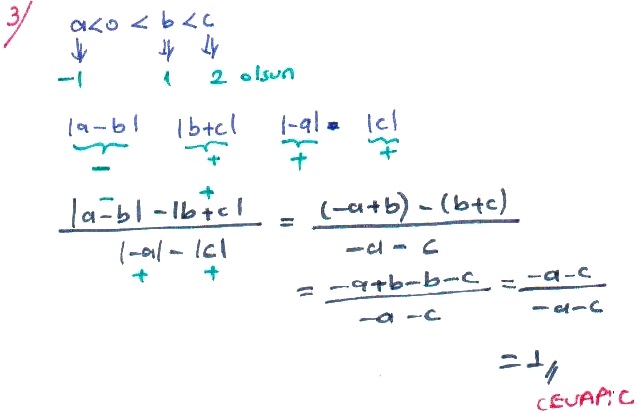 3/ a<0 < b < c
⇓ ⇓ ⇓
-1 1 2 olsun
|a-b| |b+c| |-a| |c|
- + + +
- +
(|a-b| - |b+c|)/(|-a| - |c|) = ((-a+b) - (b+c))/(-a - c)
+ +
= (-a+b-b-c)/(-a-c) = (-a-c)/(-a-c)
= 1//
CEVAP: C